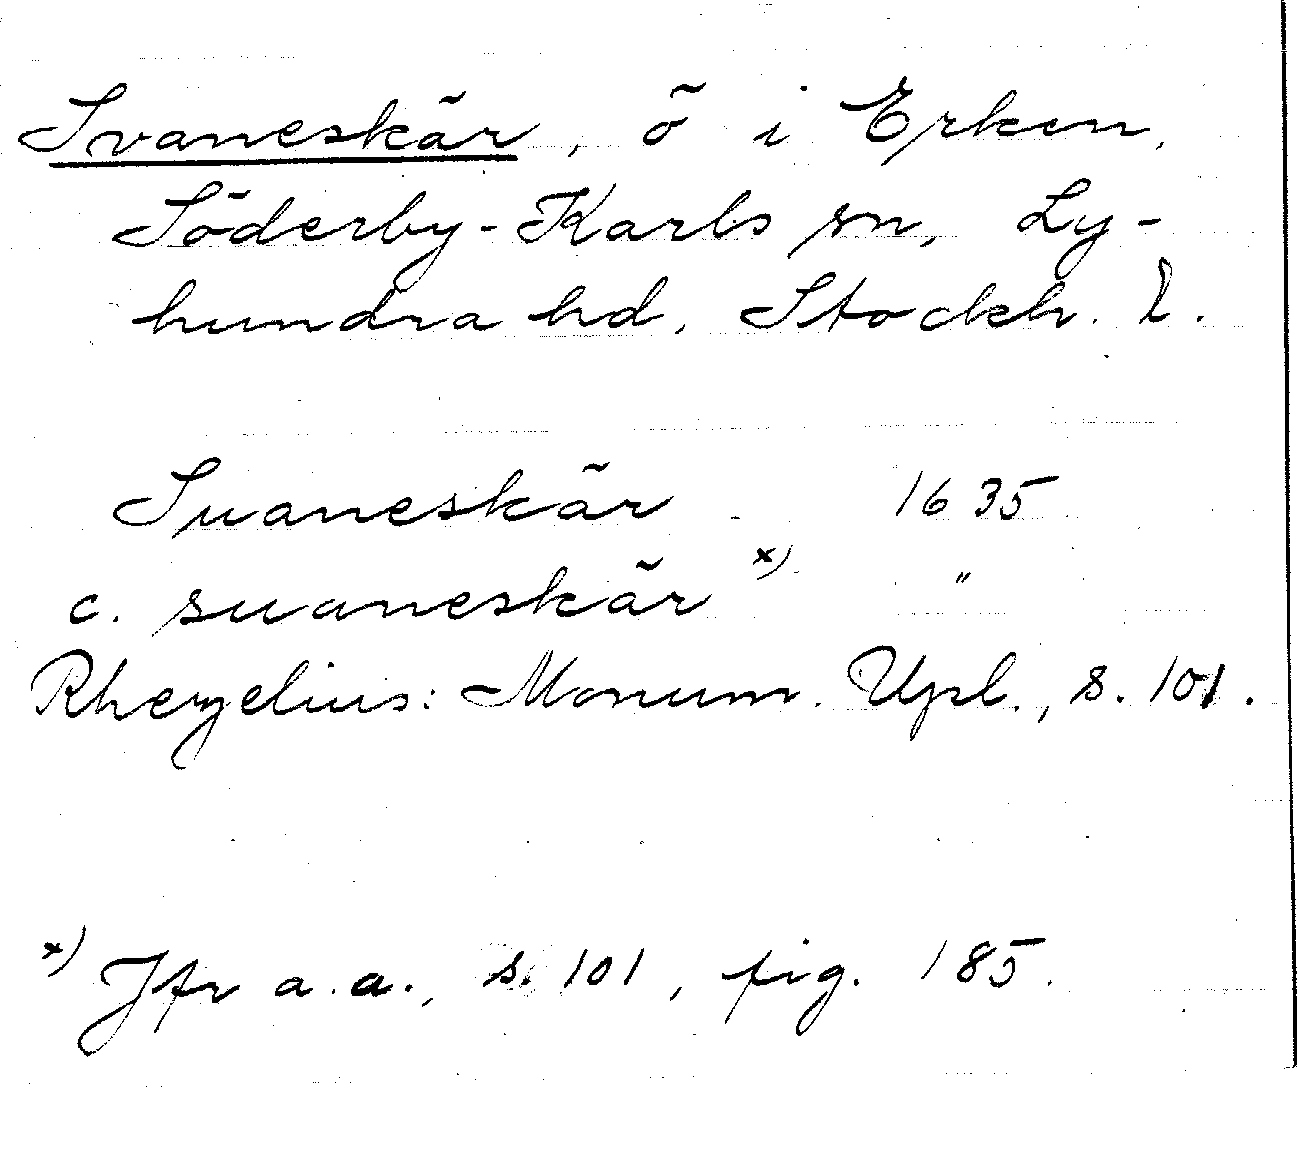 Svaneskär, ö i Erken,
Söderby-Karls sn, Ly-
hundra hd, Stockh. l.
Suaneskär 1635
c. suaneskär x) "
Rhezelius: Monum. Upl., s. 101.
x) Jfr a.a., s. 101, fig. 185.